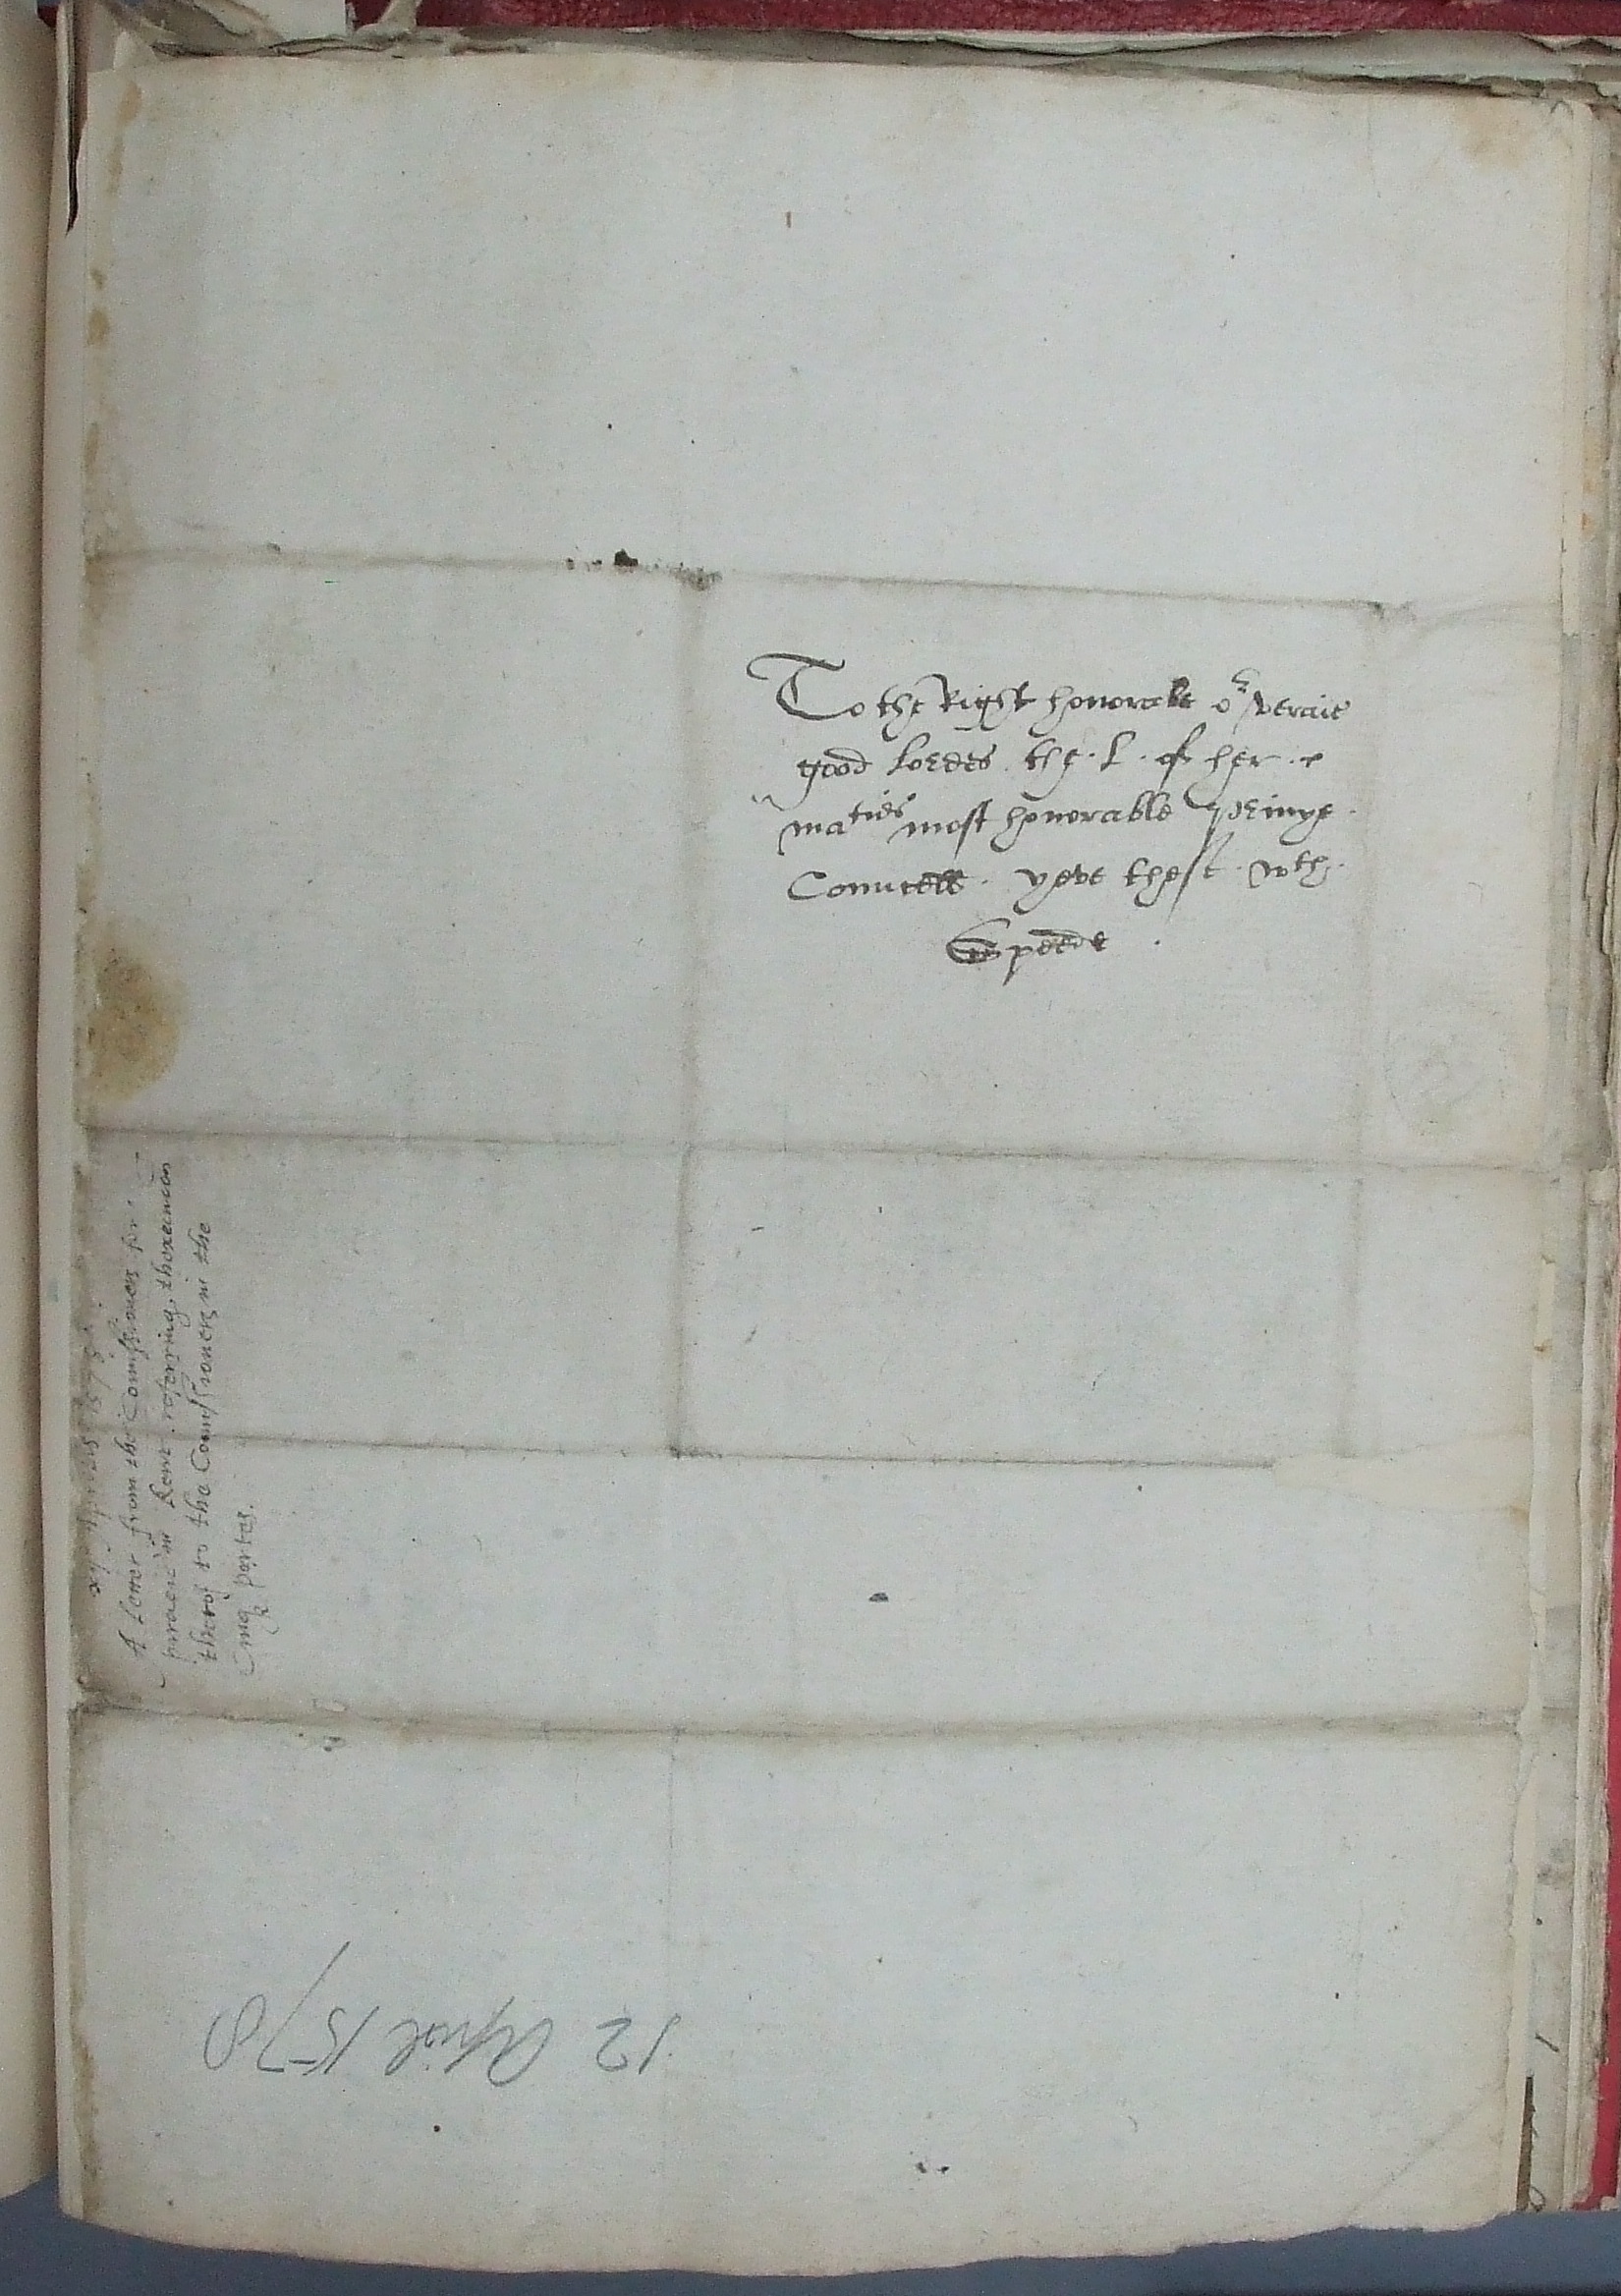 To the Right honorable or veraie
good Lordes the . L . of her .
maties most honorable privye .
Councell . yeve these . wth .
Speede .
xij Aprilis 1578 .
A letter from the Comissioners for .
piracie in Kent . referring . thexecucion
therof to the Comissioners in the
Cinq portes .
12 April 1578